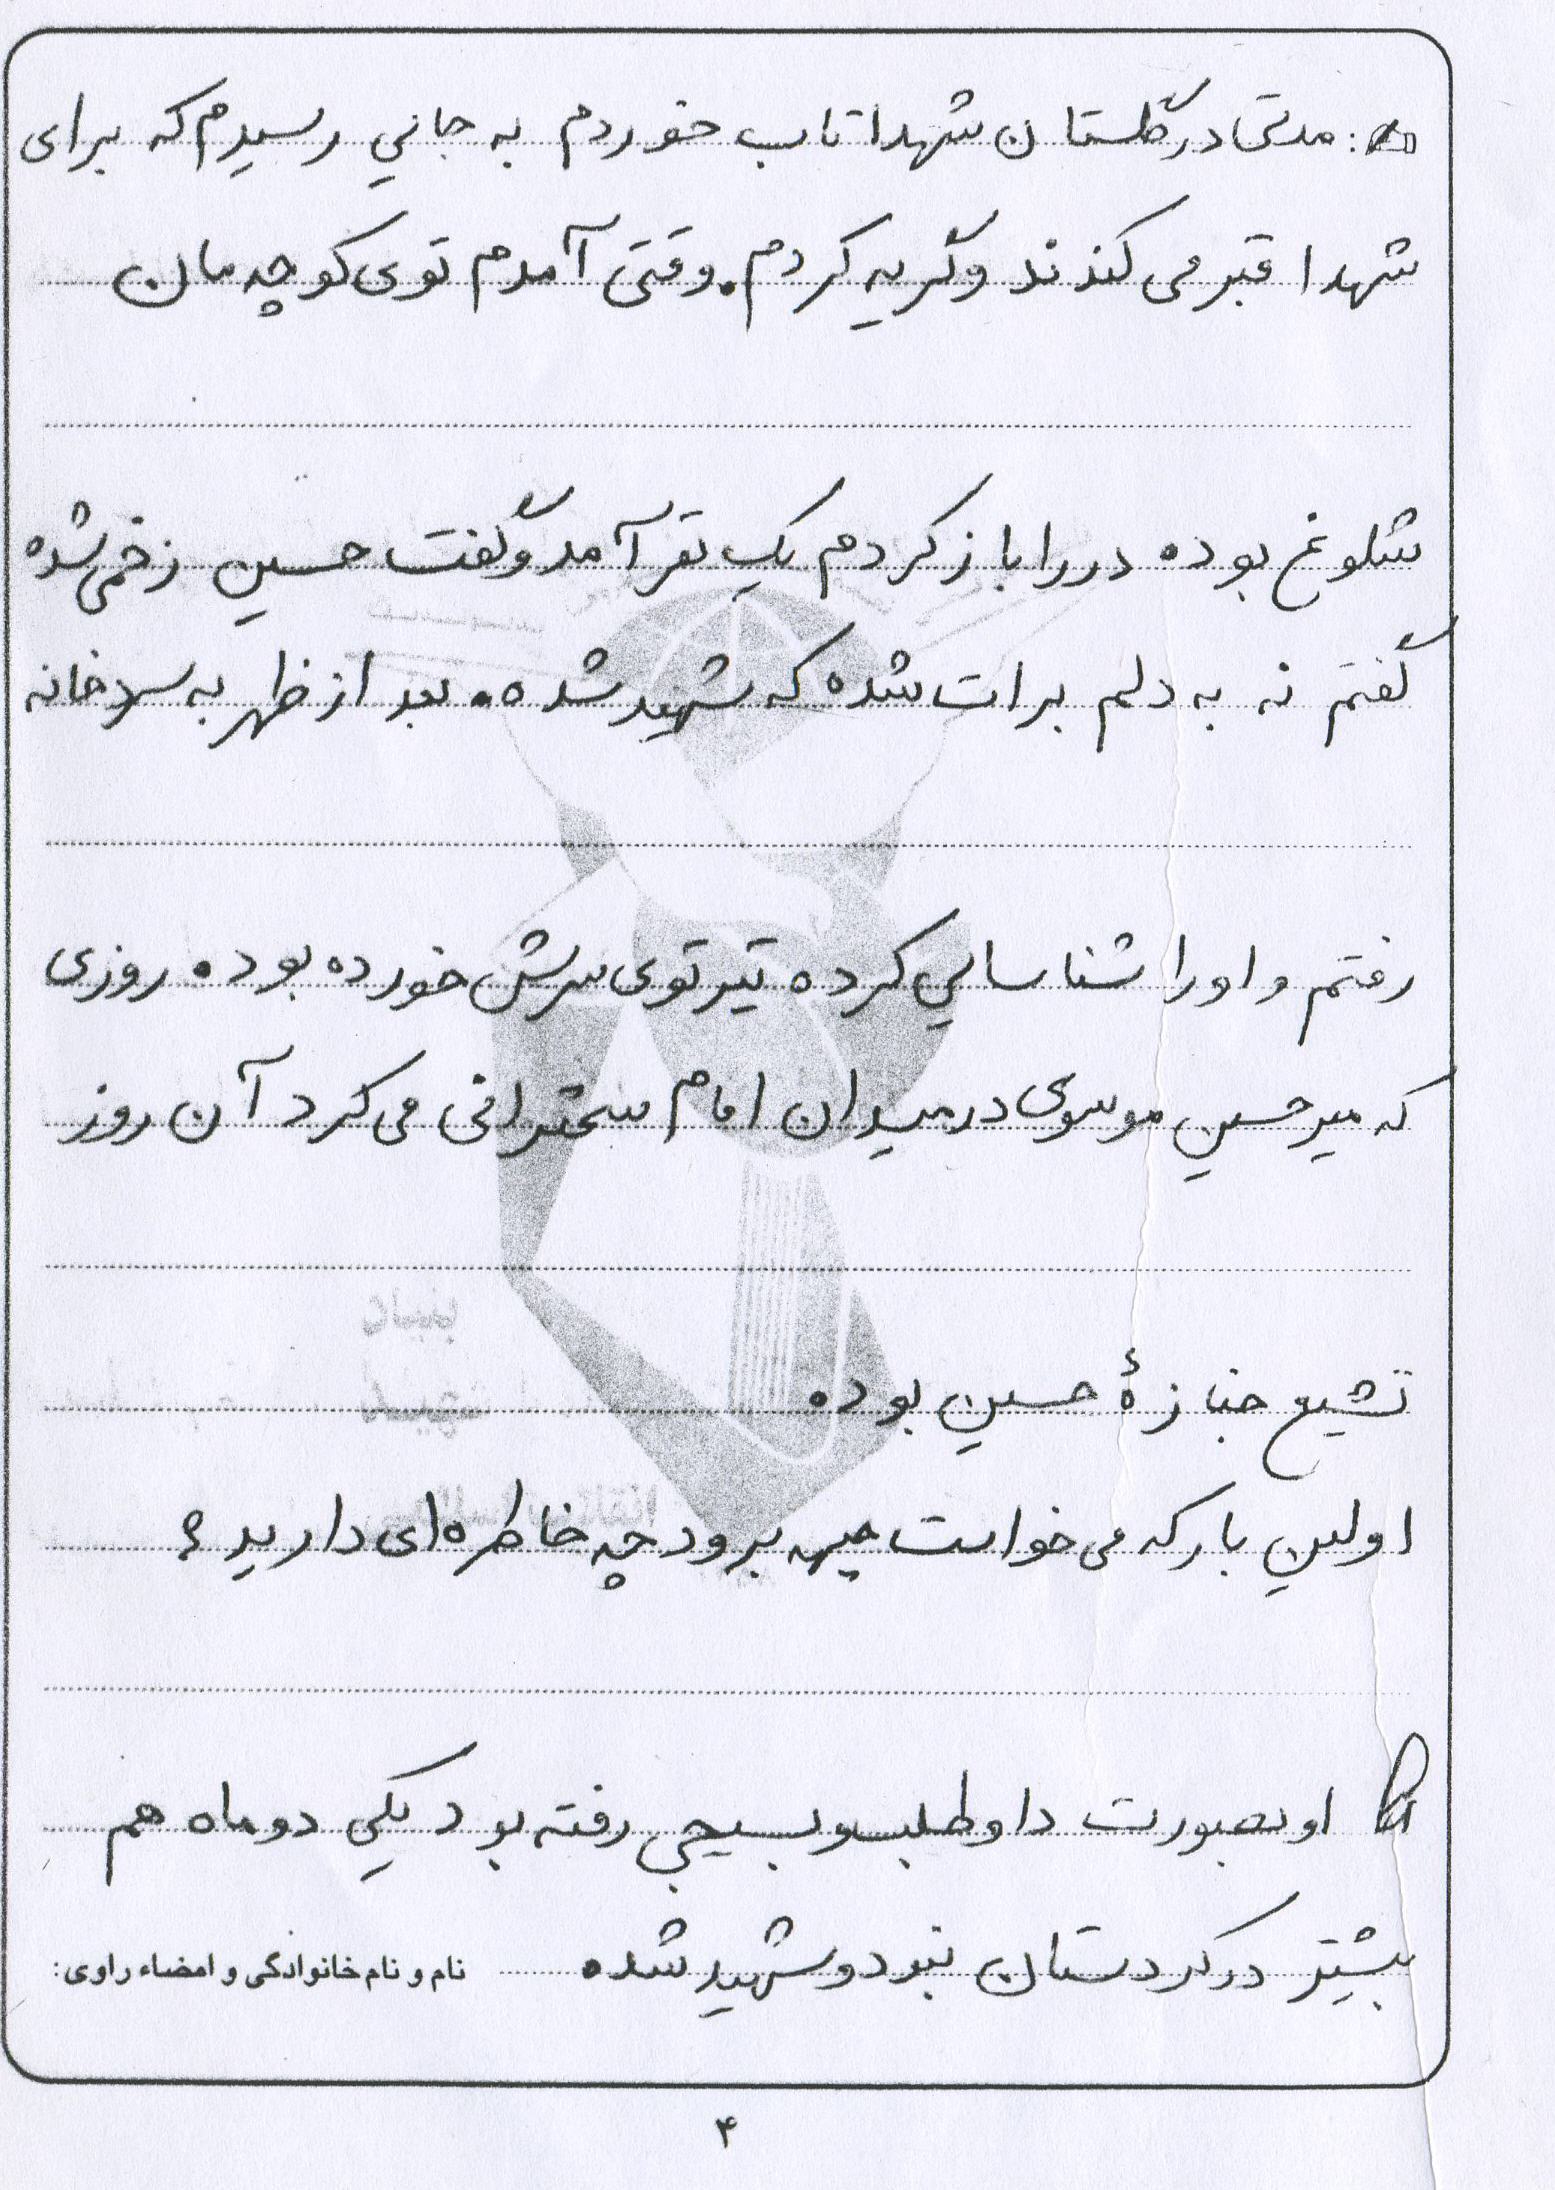 ج: مدتی در گلستان شهدا تاب خوردم به جائي رسیدم که برای
شهدا قبر می کندند و گریه کردم. وقتی آمدم توی کوچه مان
شلوغ بوده در را باز کردم یک نفر آمد و گفت حسین زخمی شده
گفتم نه به دلم برات شده که شهید شده. بعد از ظهر به سردخانه
رفتم و او را شناسائي کرده تیر توی سرش خورده بوده روزی
که میرحسین موسوی در میدان امام سخنرانی می کرد آن روز
تشیع جنازهٔ حسین بوده
اولین بار که می خواست جبهه برود چه خاطره ای دارید؟
او بصورت داوطلب و بسیجی رفته بود یکی دو ماه هم
بیشتر در کردستان نبود و شهید شده
نام و نام خانوادگی و امضاء راوی:
بنیاد
شهید
انقلاب اسلامی
۴